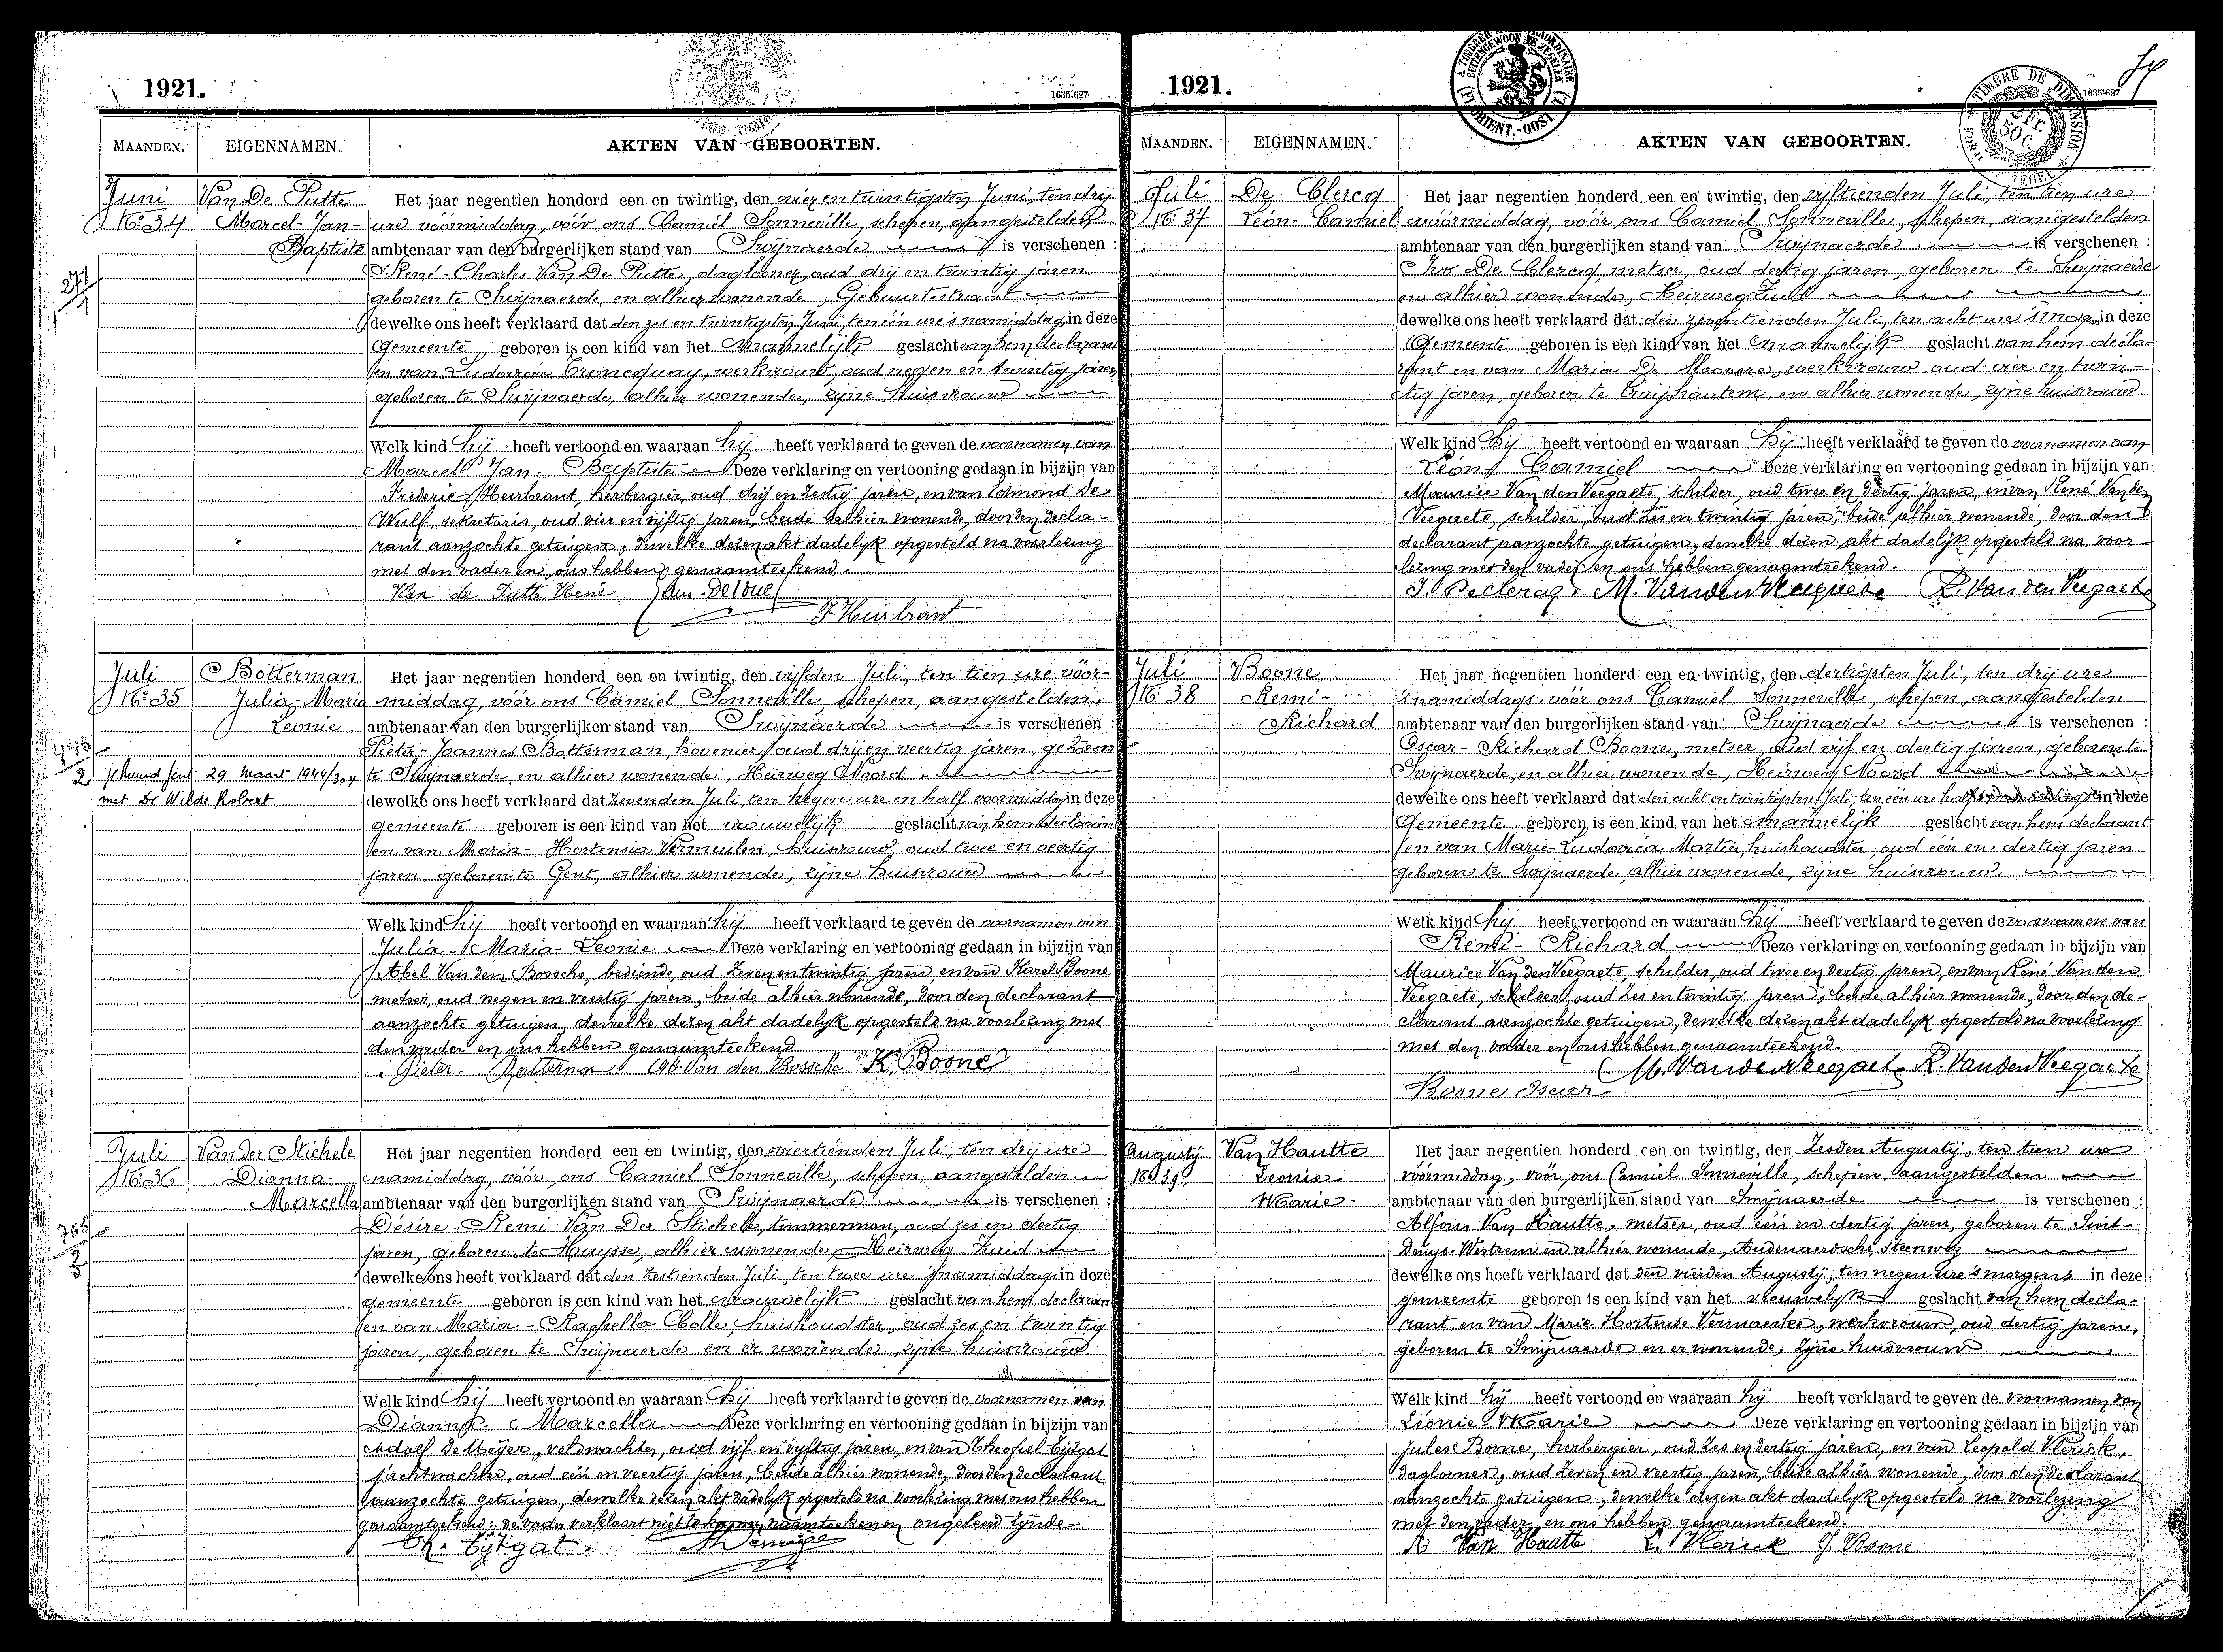 1921.
1035-627
MAANDEN. EIGENNAMEN. AKTEN VAN GEBOORTEN.
Juni Van De Putte Het jaar negentien honderd een en twintig, den Juni, ten drij
No 34 Marcel-Jan- ure vóórmiddag, vóór ons Camiel Sonneville, schepen, aangestelden
Baptiste ambtenaar van den burgerlijken stand van Swijnaerde is verschenen :
René-Charles Van De Putte, daglooner, oud drij en twintig jaren
geboren te Swijnaerde, en alhier wonende, Gebuurtestraat
dewelke ons heeft verklaard dat den zes en twintigsten Juni, ten één ure 's namiddag in deze
Gemeente geboren is een kind van het mannelijk geslacht van hem declarant
en van Ludovica , werkvrouw, oud negen en twintig jaren
geboren te Swijnaerde, alhier wonende, zijne huisvrouw
Welk kind hij heeft vertoond en waaraan hij heeft verklaard te geven de voornamen van
Marcel Jan-Baptiste Deze verklaring en vertooning gedaan in bijzijn van
Frederic Heirbrant, herbergier, oud drij en zestig jaren, en van Edmond De
Wulf, sekretaris, oud vier en vijftig jaren, beide alhier wonende, door den decla-
rant aanzochte getuigen, dewelke dezen akt dadelyk opgesteld na voorlezing
met den vader en ons hebben genaamteekend.
Van de Putte René
F Heirbrant
Juli Botterman Het jaar negentien honderd een en twintig, den vijfden Juli, ten tien ure vóór-
No 35 Julia-Maria middag, vóór ons Camiel Sonneville, schepen, aangestelden
Leonie ambtenaar van den burgerlijken stand van Swijnaerde is verschenen :
Pieter-Joannes Botterman, hovenier, oud drij en veertig jaren, geboren
gehuwd Gent 29 Maart 1944/304 te Swijnaerde, en alhier wonende, Heirweg Noord
met De Wilde Robert dewelke ons heeft verklaard dat den Juli, ten negen ure en half voormiddag in deze
gemeente geboren is een kind van het vrouwelijk geslacht van hem declarant
en van Maria-Hortensia Vermeulen, huisvrouw, oud twee en veertig
jaren geboren te Gent, alhier wonende, zijne huisvrouw
Welk kind hij heeft vertoond en waaraan hij heeft verklaard te geven de voornamen van
Julia-Maria-Leonie Deze verklaring en vertooning gedaan in bijzijn van
Abel Van den Bossche, bediende, oud zeven en twintig jaren, en van Karel Boone
metser, oud negen en veertig jaren, beide alhier wonende, door den declarant
aanzochte getuigen, dewelke dezen akt dadelyk opgesteld na voorlezing met
den vader en ons hebben genaamteekend
Pieter Botterman Ab. Van den Bossche K. Boone
Juli Van Der Stichele Het jaar negentien honderd een en twintig, den Juli, ten drij ure
No 36 Dianna- namiddag, vóór ons Camiel Sonneville, schepen, aangestelden
Marcella ambtenaar van den burgerlijken stand van Swijnaerde is verschenen :
Désiré-Remi Van Der Stichele, timmerman, oud zes en dertig
jaren, geboren te Huysse, alhier wonende, Heirweg Zuid
dewelke ons heeft verklaard dat den Juli, ten twee ure namiddags in deze
gemeente geboren is een kind van het vrouwelijk geslacht van hem declarant
en van Maria-Raphella Colle, huishoudster, oud zes en twintig
jaren, geboren te Swijnaerde en er wonende, zijne huisvrouw
Welk kind hij heeft vertoond en waaraan hij heeft verklaard te geven de voornamen van
Dianna-Marcella Deze verklaring en vertooning gedaan in bijzijn van
Adolf De Meyer, veldwachter, oud vijf en vyftig jaren, en van Theophiel Cijtgat
jachtwachter, oud één en veertig jaren, beide alhier wonende, door den declarant
aanzochte getuigen, dewelke dezen akt dadelyk opgesteld na voorlezing met ons hebben
genaamteekend; de vader verklaart niet te konnen naamteekenen ongeleerd zijnde
Th. Cijtgat
1921.
1035-627
TIMBRE DE DIMENSION
MAANDEN. EIGENNAMEN. AKTEN VAN GEBOORTEN.
Juli De Clercq Het jaar negentien honderd een en twintig, den Juli, ten tien ure
No 37 Léon-Camiel vóórmiddag, vóór ons Camiel Sonneville, schepen, aangestelden
ambtenaar van den burgerlijken stand van Swijnaerde is verschenen :
Ivo De Clercq, metser, oud dertig jaren, geboren te Swijnaerde
en alhier wonende, Heirweg Zuid
dewelke ons heeft verklaard dat den zeventienden Juli, ten acht ure in deze
Gemeente geboren is een kind van het mannelijk geslacht van hem decla-
rant en van Maria De Moovere, werkvrouw oud vier en twin-
tig jaren, geboren te Cruijshautem, en alhier wonende, zijne huisvrouw
Welk kind hij heeft vertoond en waaraan hij heeft verklaard te geven de voornamen van
Léon Camiel Deze verklaring en vertooning gedaan in bijzijn van
Maurice Van den Veegaete, schilder, oud twee en dertig jaren, en van René Van den
Veegaete, schilder, oud zes en twintig jaren, beide alhier wonende, door den
declarant aanzochte getuigen, dewelke dezen akt dadelyk opgesteld na voor-
lezing met den vader en ons hebben genaamteekend.
I. Declercq. M. Vanden Veegaete R. Van den Veegaete
Juli Boone Het jaar negentien honderd een en twintig, den dertigsten Juli, ten drij ure
No 38 Remi- 's namiddags, vóór ons Camiel Sonneville, schepen, aangestelden
Richard ambtenaar van den burgerlijken stand van Swijnaerde is verschenen :
Oscar-Richard Boone, metser, oud vijf en dertig jaren, geboren te
Swijnaerde, en alhier wonende, Heirweg Noord
dewelke ons heeft verklaard dat den acht en twintigsten Juli, ten één ure half in deze
Gemeente geboren is een kind van het mannelijk geslacht van hem declarant
en van Marie-Ludovica Martin, huishoudster, oud één en dertig jaren
geboren te Swijnaerde, alhier wonende, zijne huisvrouw.
Welk kind hij heeft vertoond en waaraan hij heeft verklaard te geven de voornamen van
Remi-Richard Deze verklaring en vertooning gedaan in bijzijn van
Maurice Van den Veegaete, schilder, oud twee en dertig jaren, en van René Van den
Veegaete, schilder, oud zes en twintig jaren, beide alhier wonende, door den de-
clarant aanzochte getuigen, dewelke dezen akt dadelyk opgesteld na voorlezing
met den vader en ons hebben genaamteekend.
M. Vanden Veegaete R. Van den Veegaete
Boone Oscar
Augustij Van Hautte Het jaar negentien honderd een en twintig, den zesden Augustij, ten tien ure
No 39 Leonie- vóórmiddag, vóór ons Camiel Sonneville, schepene, aangestelden
Marie- ambtenaar van den burgerlijken stand van Swijnaerde is verschenen :
Alfons Van Hautte, metser, oud één en dertig jaren, geboren te Sint-
Denys-Westrem en alhier wonende, Audenaerdsche Steenweg
dewelke ons heeft verklaard dat den vierden Augustij, ten negen ure 's morgens in deze
gemeente geboren is een kind van het vrouwelyk geslacht van hem decla-
rant en van Marie-Hortense Vermaercke, werkvrouw, oud dertig jaren,
geboren te Swijnaerde en er wonende, zijne huisvrouw
Welk kind hij heeft vertoond en waaraan hij heeft verklaard te geven de voornamen van
Léonie-Marie Deze verklaring en vertooning gedaan in bijzijn van
Jules Boone, herbergier, oud zes en dertig jaren, en van Leopold Vlerick,
daglooner, oud zeven en veertig jaren, beide alhier wonende, door den declarant
aanzochte getuigen, dewelke dezen akt dadelyk opgesteld na voorlezing
met den vader en ons hebben genaamteekend.
A. Van Hautte L. Vlerick J. Boone